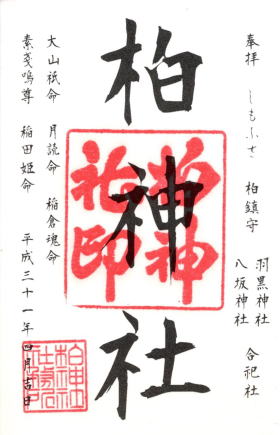 奉拝 しもふさ 柏鎮守 羽黒神社 八坂神社 合祀社
柏神社
大山祇命 月読命 稲倉魂命
素戔嗚尊 稲田姫命 平成三十一年四月吉日
柏神社